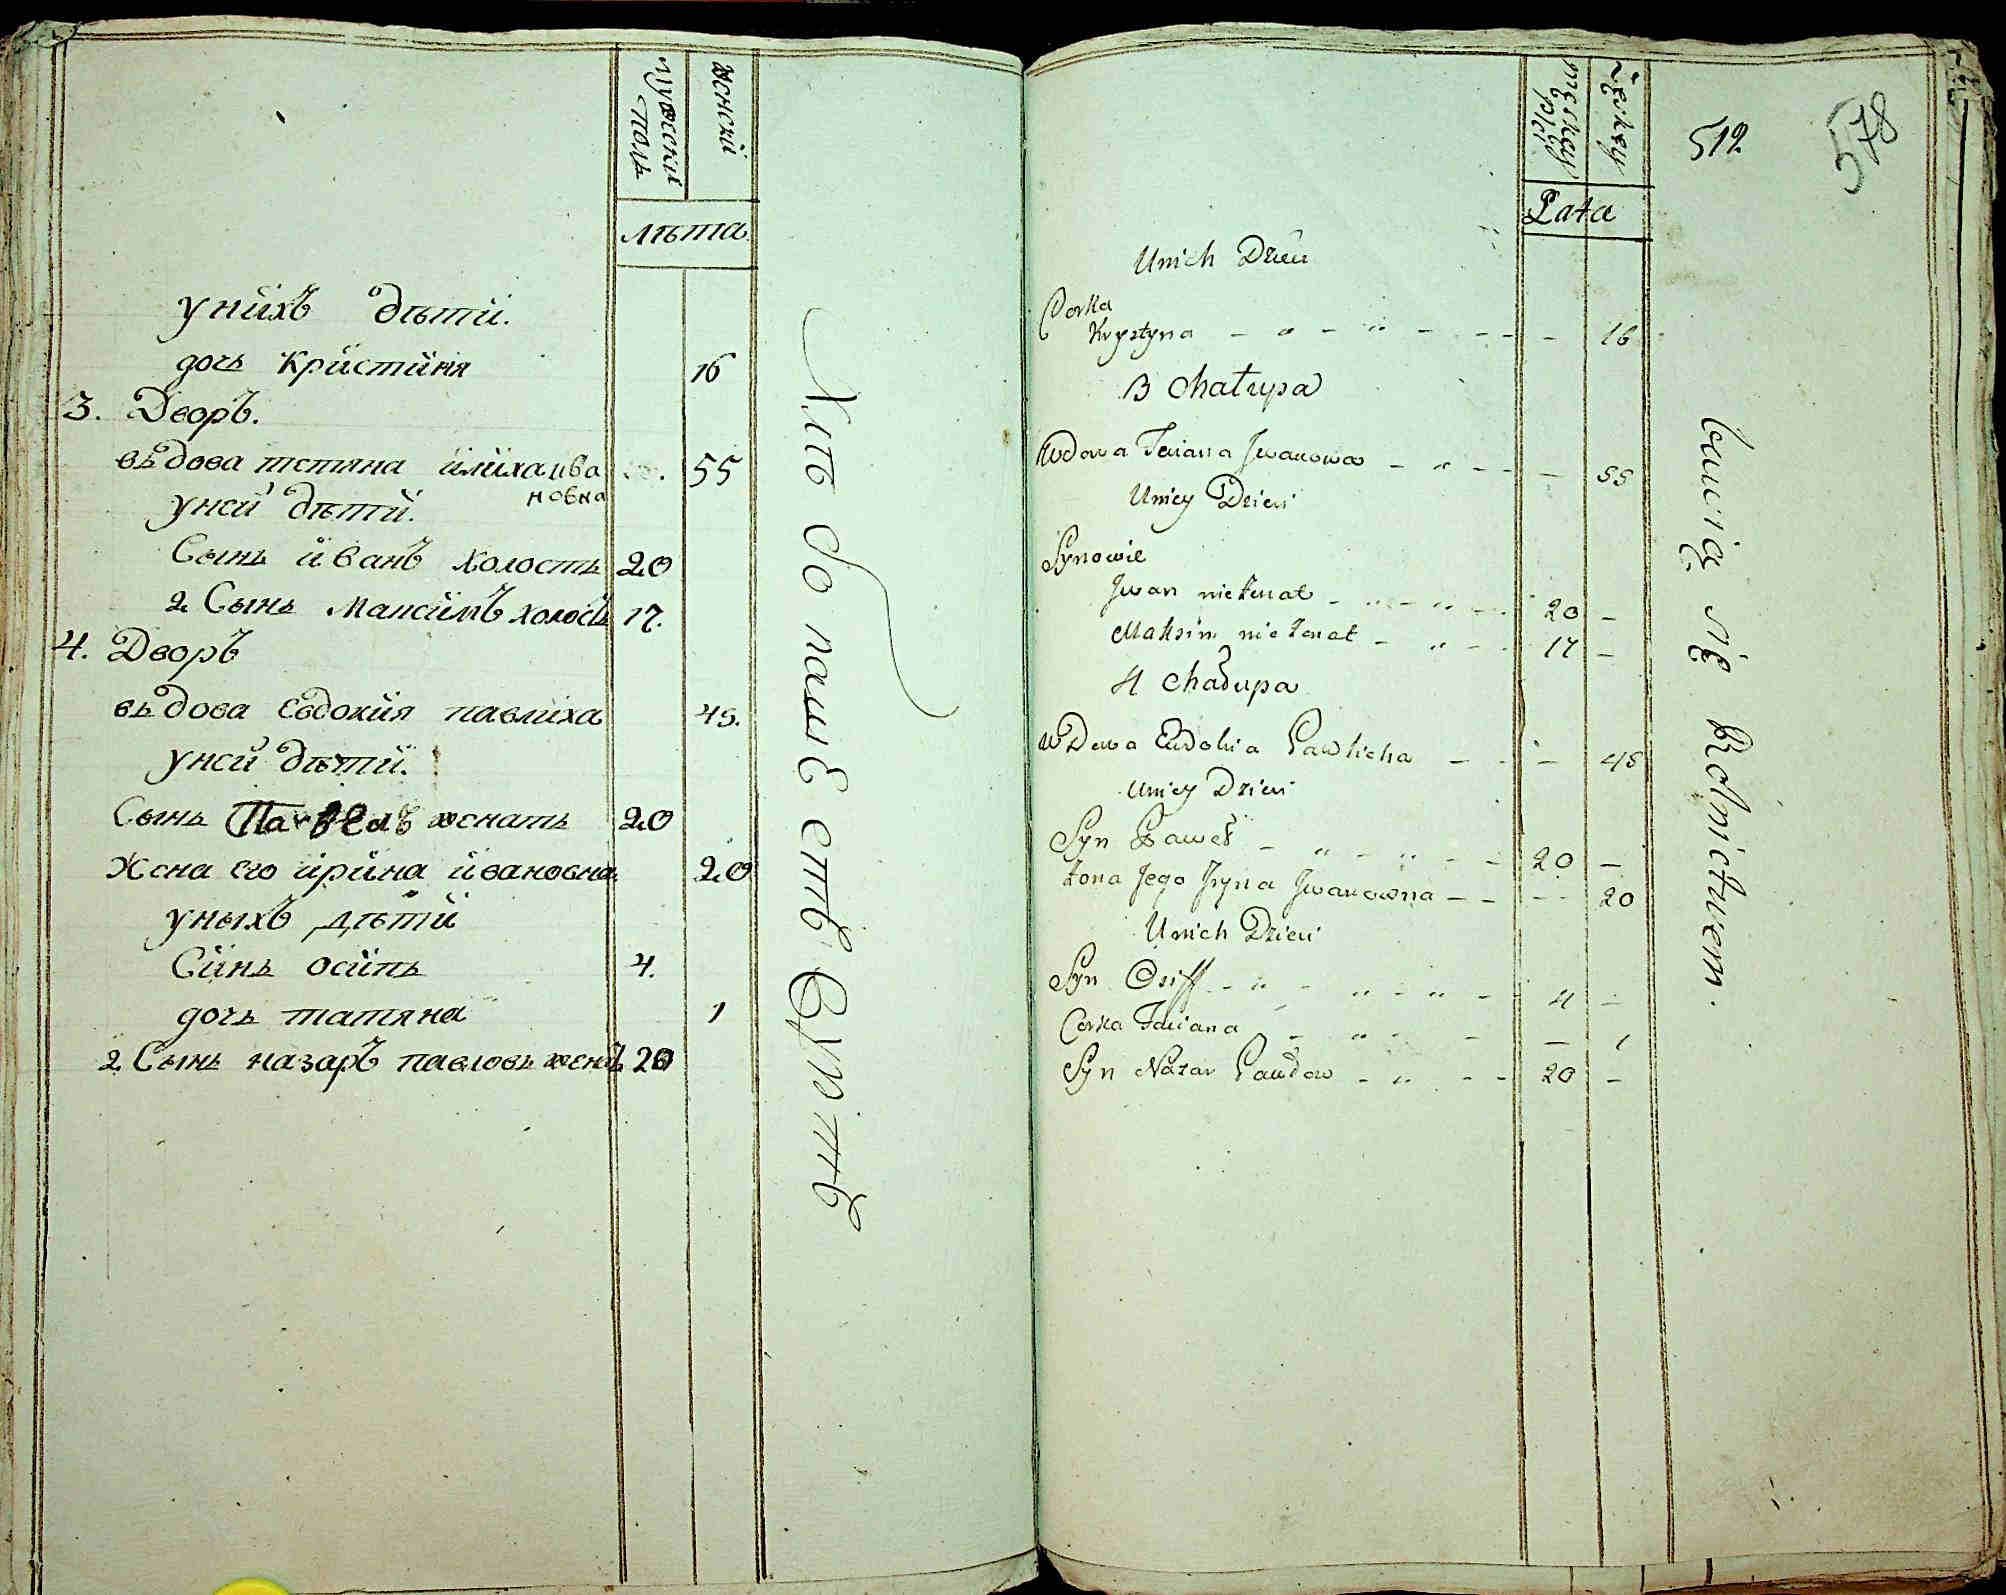 мужеский полъ
женский
лѣта
у нихъ дѣти.
дочь Кристиня 16
3. Дворъ.
вьдова тетяна илиха ива 55
новна
у ней дѣти.
Сынь иванъ холость 20
2 Сынь максимъ холость 17.
4. Дворъ
вьдова Евдокия павлиха 45.
у ней дѣти.
Сынь Павелъ женать 20
Жена его ирина ивановна 20
у ныхъ дѣти
Синь осипь 4.
дочь татяна 1
2 Сынь назаръ павловь женъ 20
Хлѣбо пашЕствъ
męskey płci
żęskey
Lata
512
578
Unich Dzieci
Corka
Krystyna - " - " - - - 16
3 Chałupa
Wdowa Taciana Jwanowa - " - - - 55
Uniey Dzieci
Synowie
Jwan nieżenat - " - " - - 20 -
Maksim nieżenat - " - - 17 -
4 Chałupa
Wdowa Eudokia Pawlicha - - - 45
Uniey Dzieci
Syn Paweł - " - " - - 20 -
żona Jego Jryna Jwanowna - - - - 20
Unich Dzieci
Syn Osiff - " - " - " - 4 -
Corka Taciana - " - - - 1
Syn Nazar Pawłow - " - - 20 -
bawią się Rolnictwem.